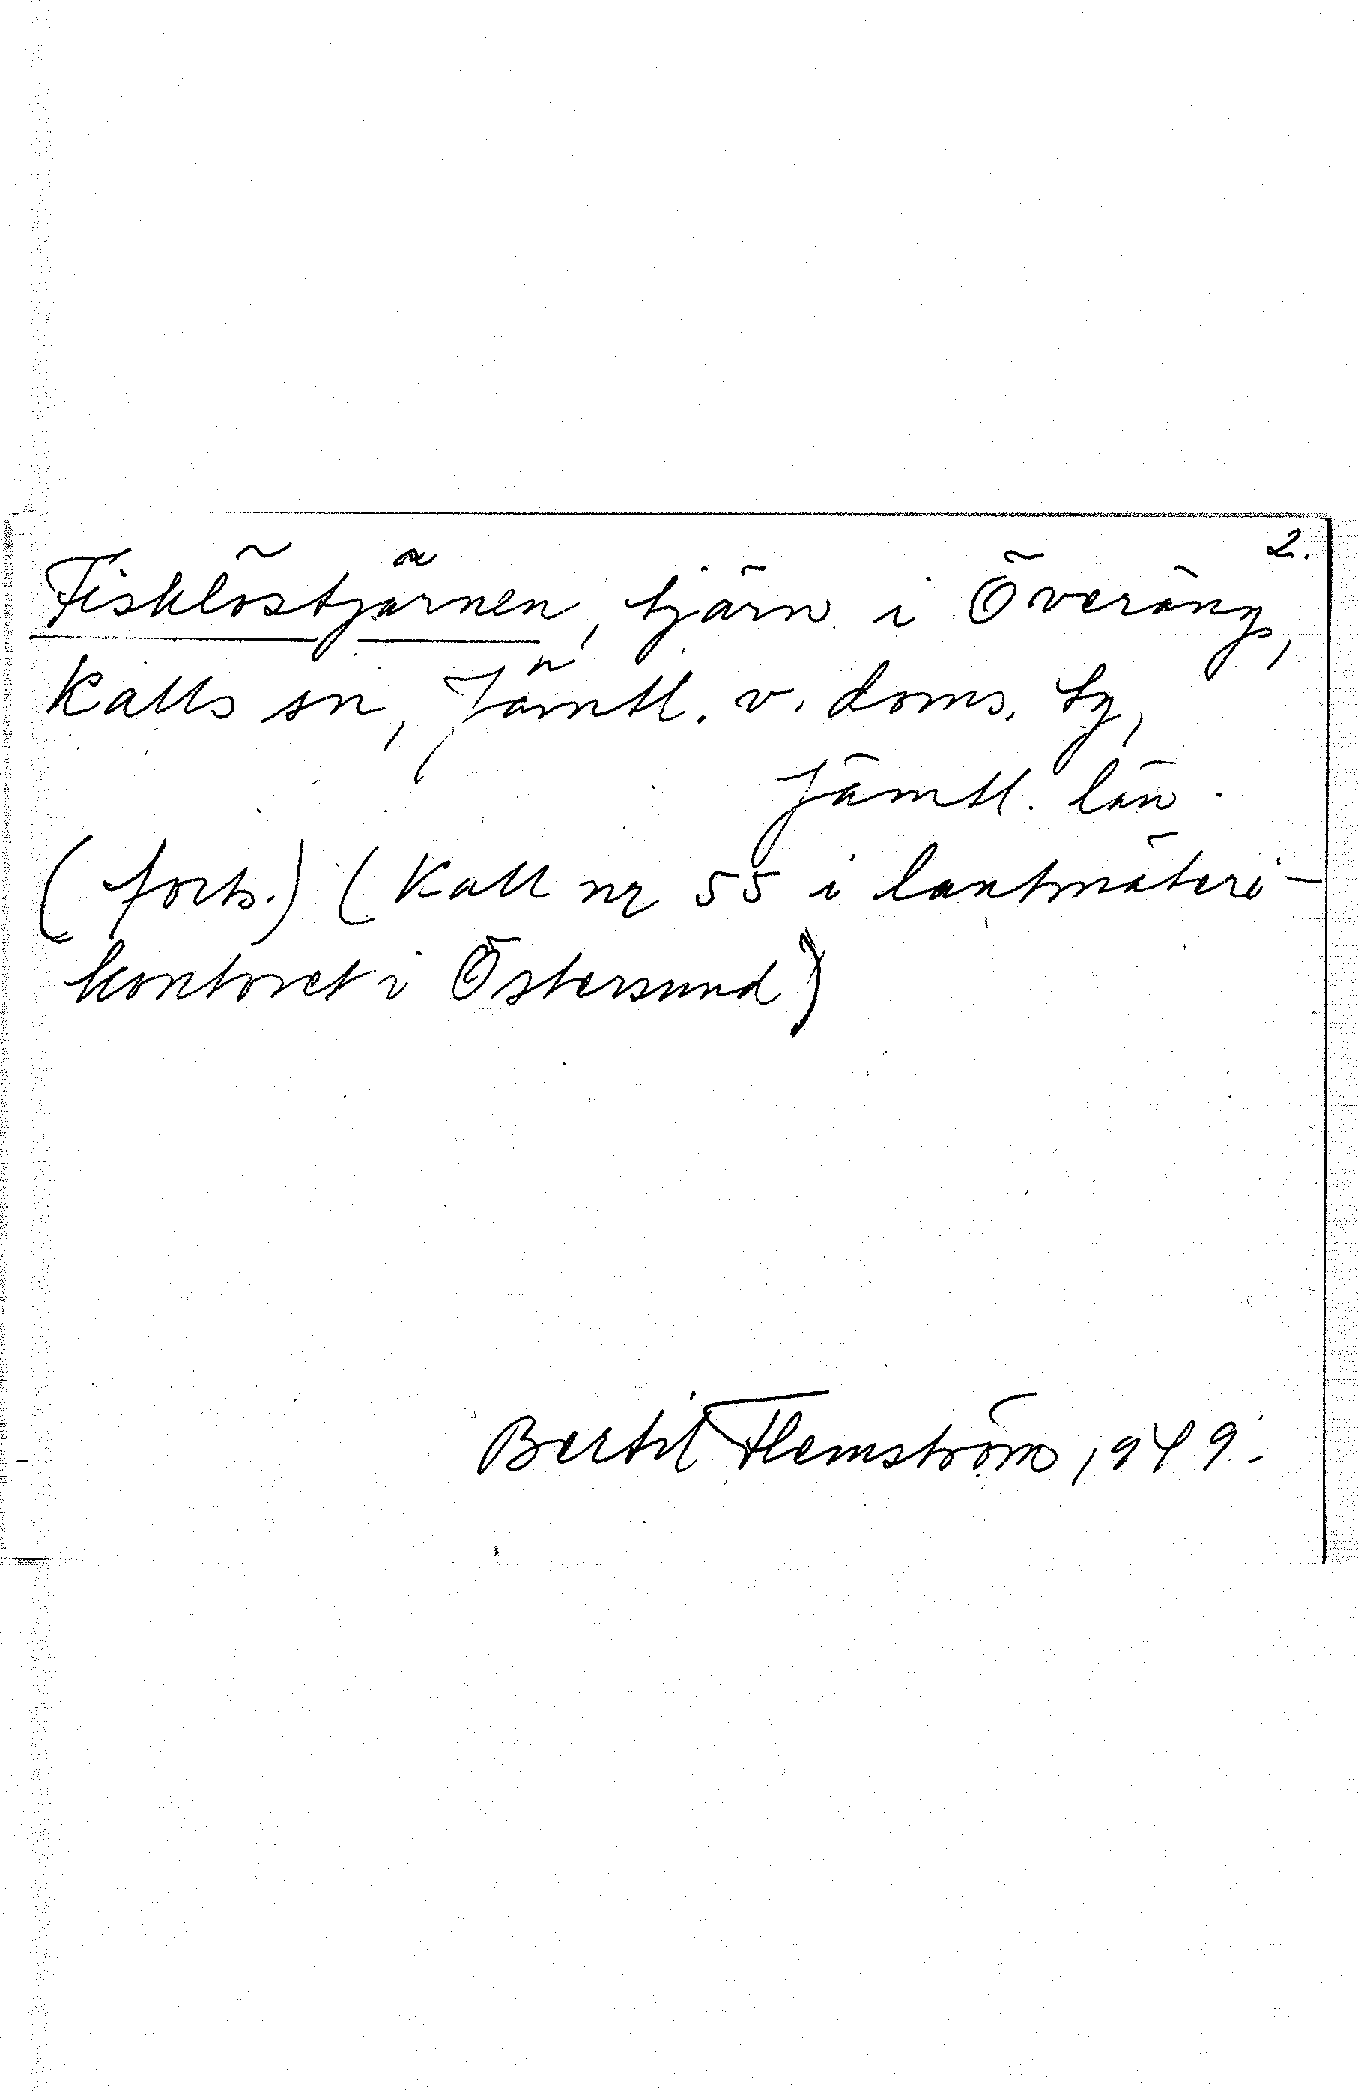 2.
Fisklöstjärnen, tjärn i Överäng,
Kalls sn, Jämtl. v. doms. tg,
Jämtl. län.
(forts.) (Kall nr 55 i lantmäteri-
kontoret i Östersund)
Bertil Flemström, 1949.